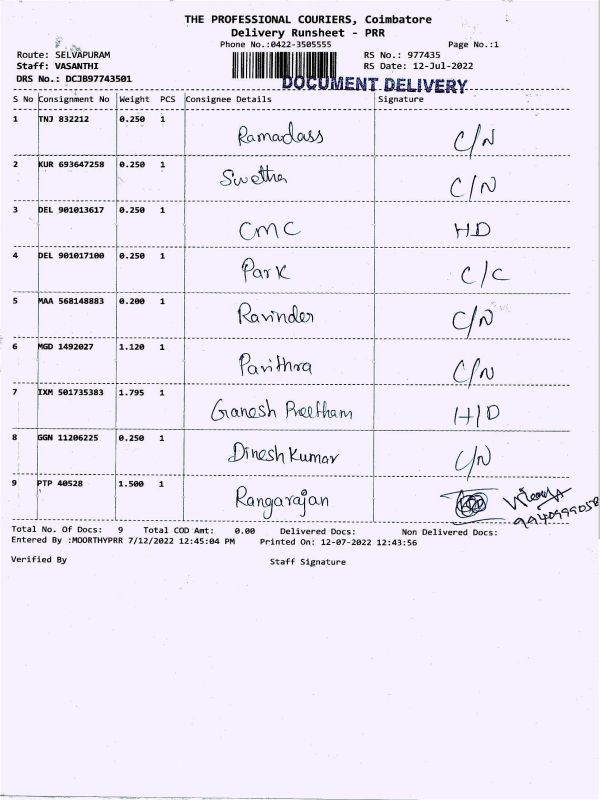 THE PROFESSIONAL COURIERS, Coimbatore
Delivery Runsheet - PRR
Phone No.:0422-3505555 Page No.:1
Route: SELVAPURAM RS No.: 977435
Staff: VASANTHI RS Date: 12-Jul-2022
DRS No.: DCJB97743501
DOCUMENT DELIVERY
S No Consignment No Weight PCS Consignee Details Signature
1 TNJ 832212 0.250 1 Ramadass C/N
2 KUR 693647258 0.250 1 Swetha C/N
3 DEL 901013617 0.250 1 CMC HD
4 DEL 901017100 0.250 1 Park C/C
5 MAA 568148883 0.200 1 Ravinder C/N
6 MGD 1492027 1.120 1 Pavithra C/N
7 IXM 501735383 1.795 1 Ganesh Preetham H/D
8 GGN 11206225 0.250 1 Dinesh Kumar C/N
9 PTP 40528 1.500 1 Rangarajan
Total No. Of Docs: 9 Total COD Amt: 0.00 Delivered Docs: Non Delivered Docs:
Entered By :MOORTHYPRR 7/12/2022 12:45:04 PM Printed On: 12-07-2022 12:43:56
Verified By Staff Signature